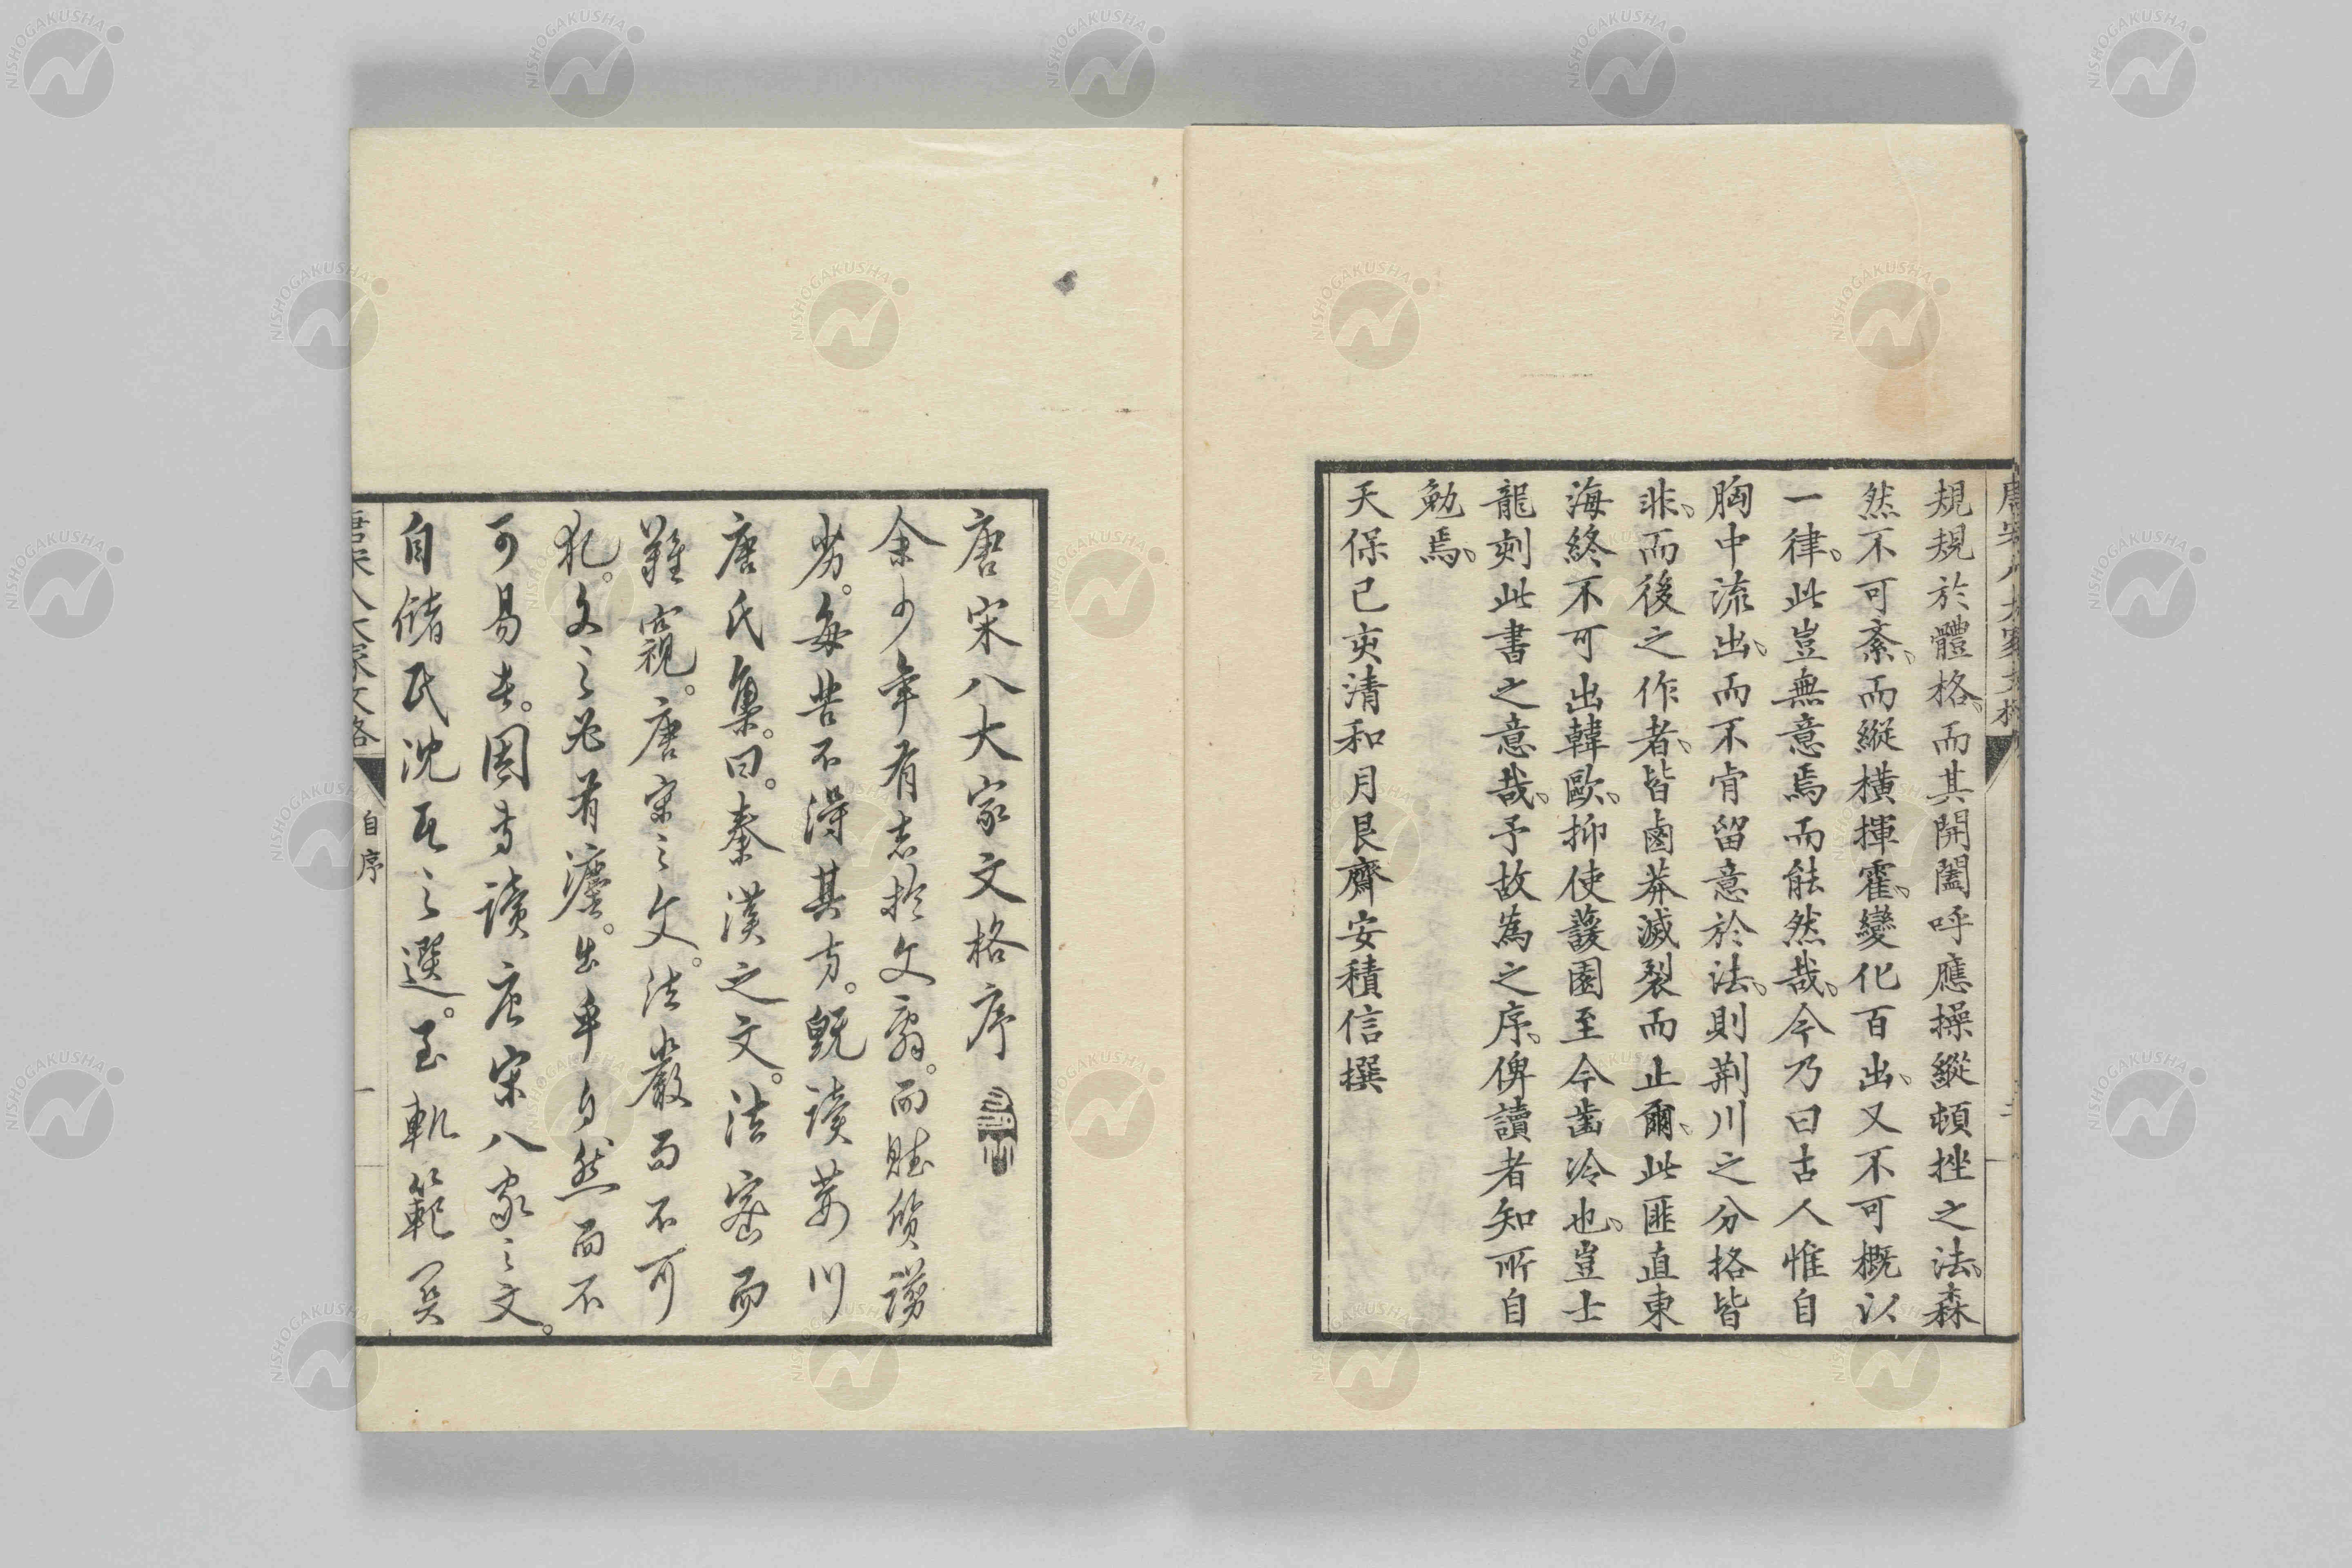 規規於體格、而其開闔呼應操縱頓挫之法、森
然不可紊、而縱橫揮霍、變化百出、又不可概以
一律、此豈無意焉而能然哉、今乃曰古人惟自
胸中流出、而不肯留意於法、則荆川之分格皆
非、而後之作者、皆鹵莽滅裂而止爾、此匪直東
海終不可出韓歐、抑使蘐園至今齒冷也、豈士
龍刻此書之意哉、予故為之序、俾讀者知所自
勉焉、
天保己亥清和月艮齋安積信撰
唐宋八大家文格序
余少年有志於文辭。而賦質譾
劣。每苦不得其方。既讀荊川
唐氏集。曰。秦漢之文。法密而
難窺。唐宋之文。法嚴而不可
犯。文之必有灋。出乎自然而不
可易者。因專讀唐宋八家之文。
自儲氏沈氏之選。至軌範關
唐宋八大家文格
自序
一
NISHOGAKUSHA